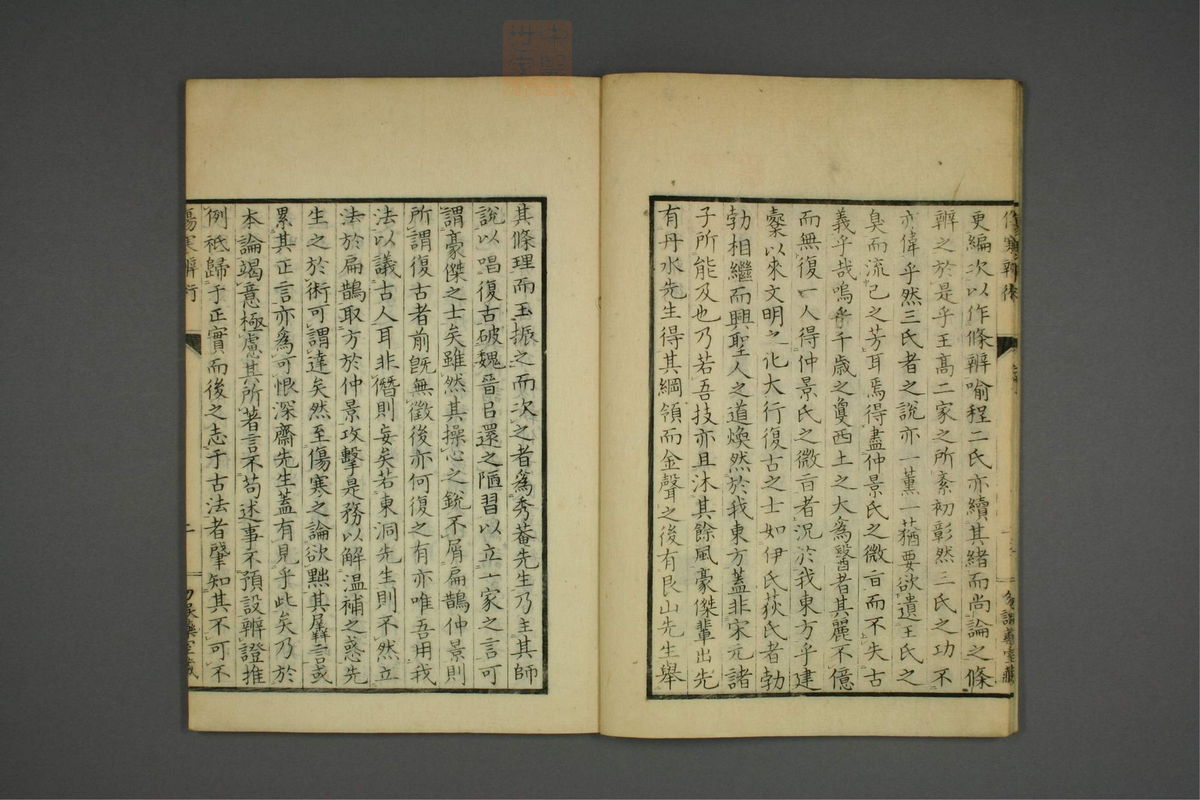 更編次以作條辨喻程二氏亦續其緒而尚論之條
辨之於是乎王高二家之所紊初彰然三氏之功不
亦偉乎然三氏者之說亦一薰一蕕要欲遺王氏之
臭而流己之芳耳焉得盡仲景氏之微旨而不失古
義乎哉嗚乎千歳之夐西土之大為醫者其麗不億
而無復一人得仲景氏之微旨者況於我東方乎建
櫜以來文明之化大行復古之士如伊氏荻氏者勃
勃相繼而興聖人之道煥然於我東方蓋非宋元諸
子所能及也乃若吾技亦且沐其餘風豪傑輩出先
有丹水先生得其綱領而金聲之後有艮山先生舉
其條理而玉振之而次之者為秀菴先生乃主其師
說以唱復古破魏晉㠯還之陋習以立一家之言可
謂豪傑之士矣雖然其操心之銳不屑扁鵲仲景則
所謂復古者前既無徵後亦何復之有亦唯吾用我
法以議古人耳非僭則妄矣若東洞先生則不然立
法於扁鵲取方於仲景攻擊是務以解温補之惑先
生之於術可謂達矣然至傷寒之論欲黜其羼言或
累其正言亦為可恨深齋先生蓋有見乎此矣乃於
本論竭意極慮其所著言不苟述事不預設辨證推
例祗歸于正實而後之志于古法者肇知其不可不
傷寒辨術
二